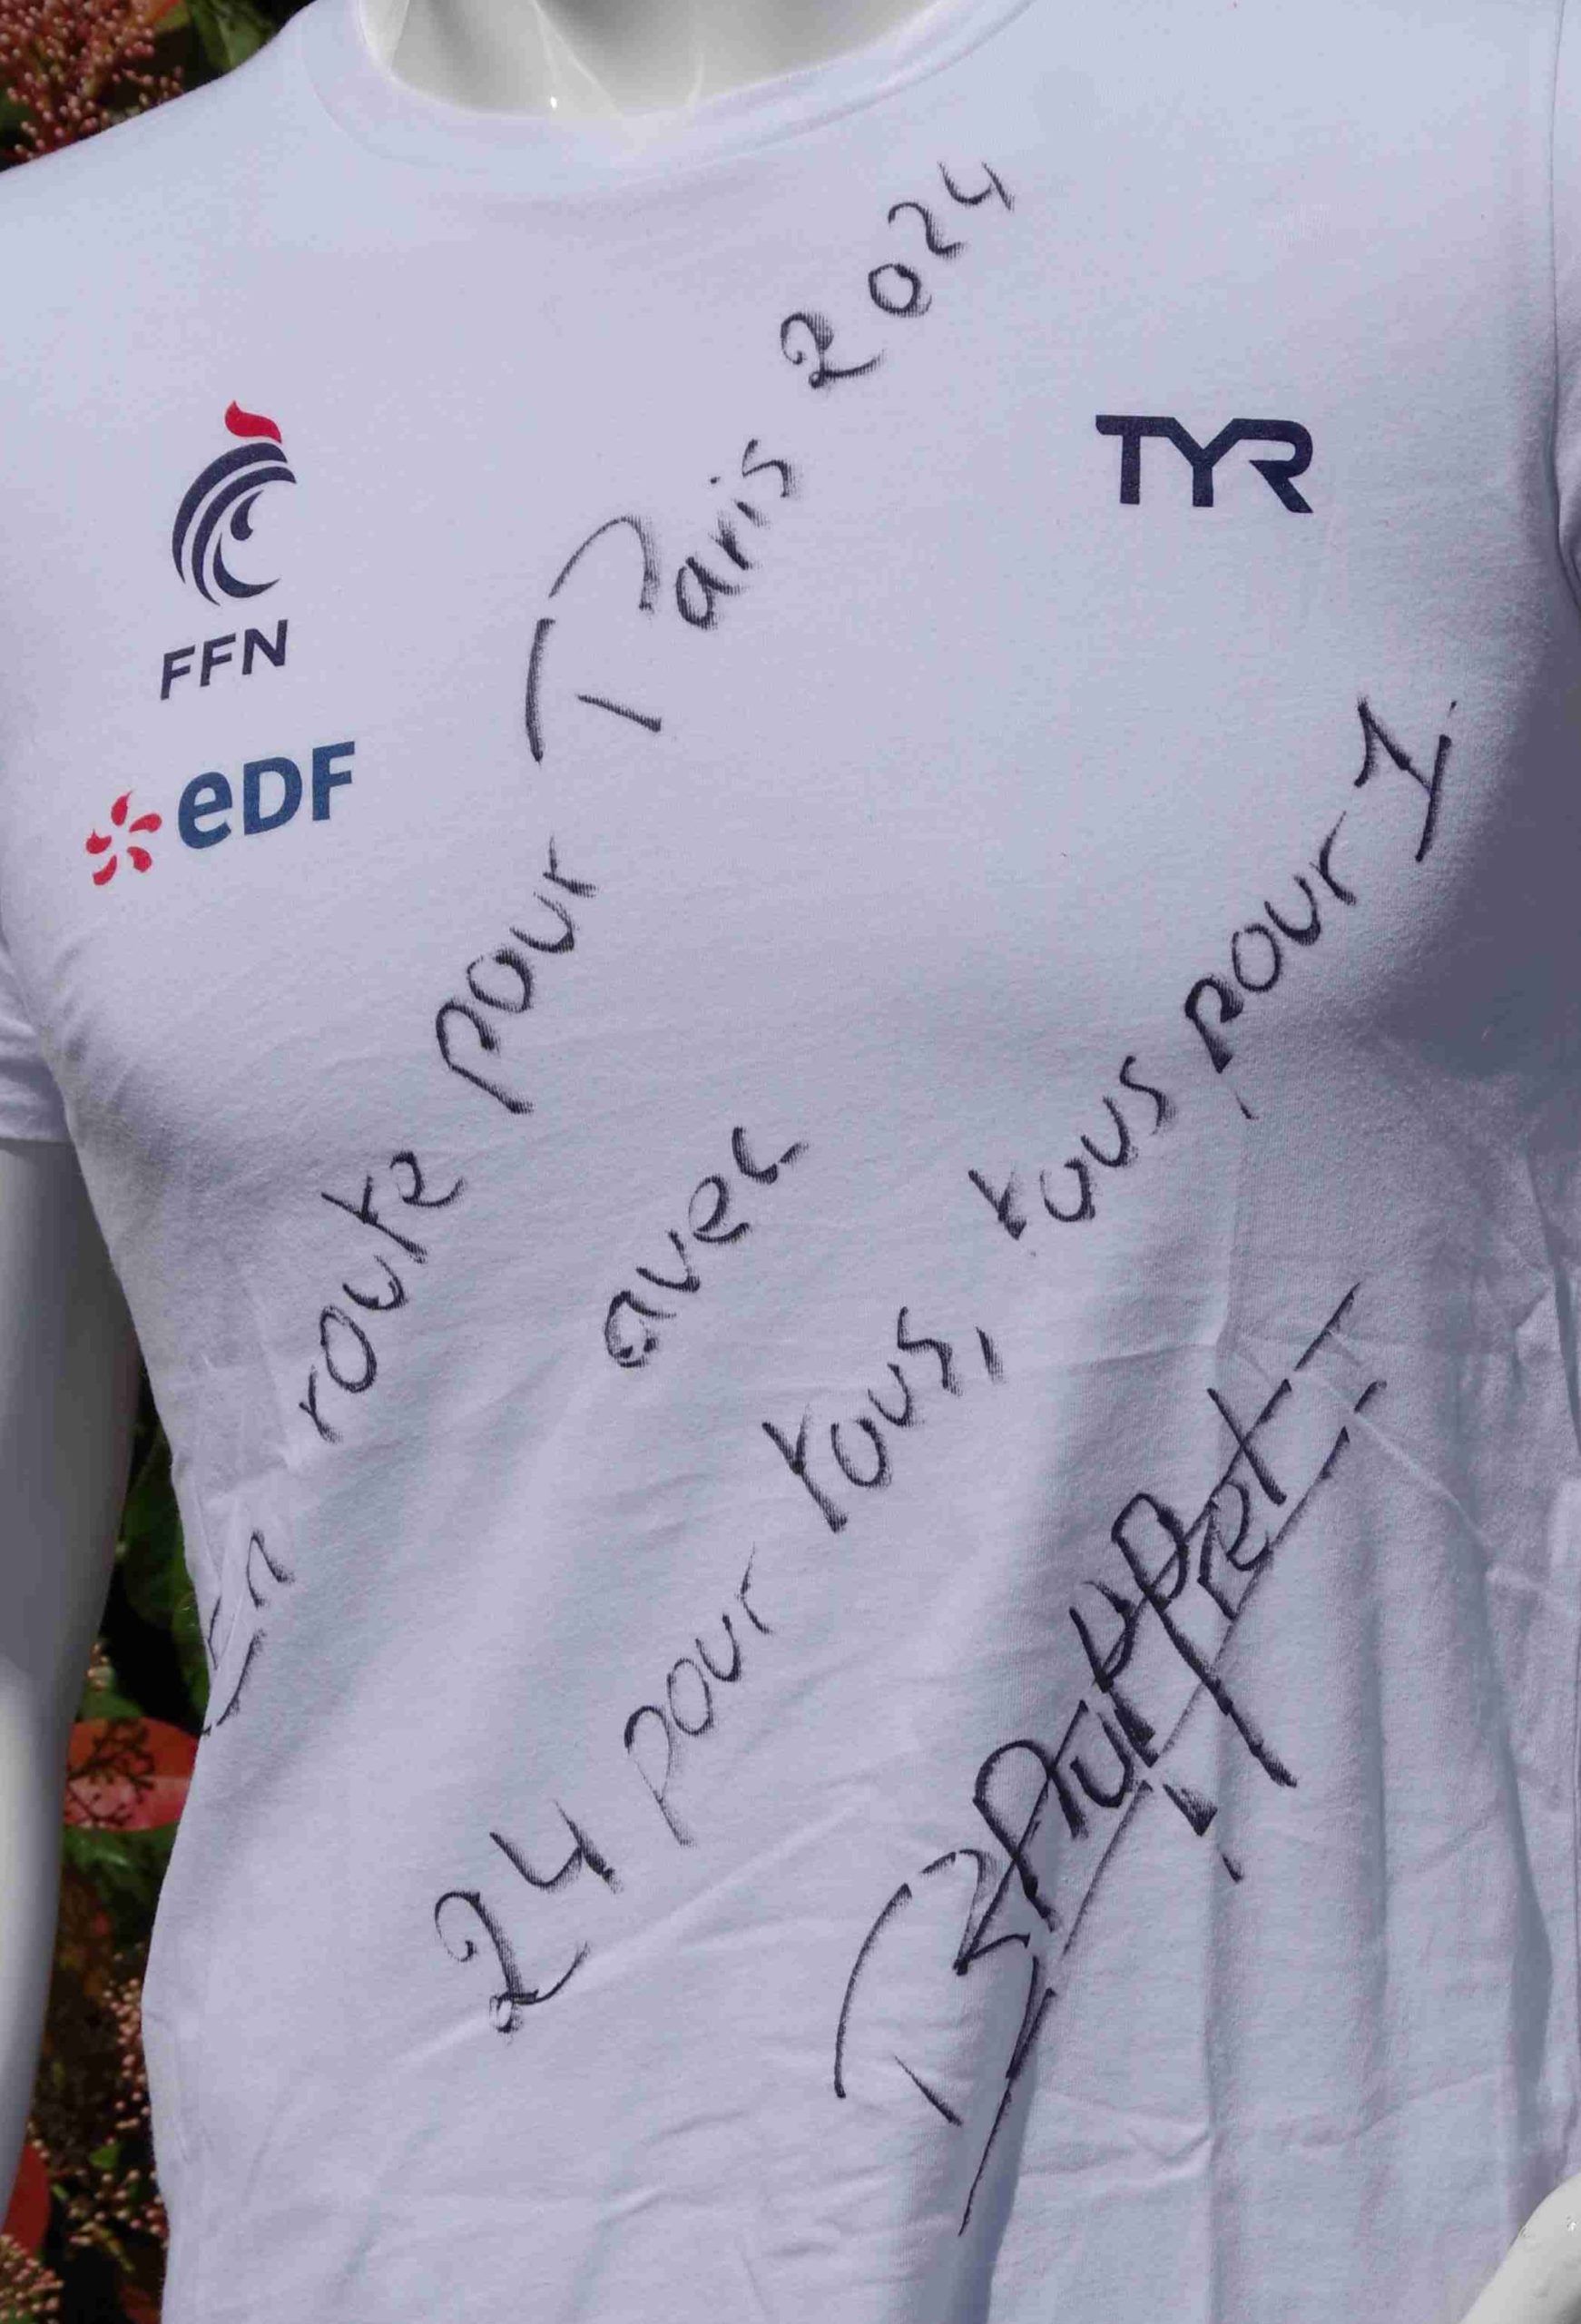 FFN
eDF
TYR
En route pour Paris 2024
avec
24 pour tous, tous pour 1.